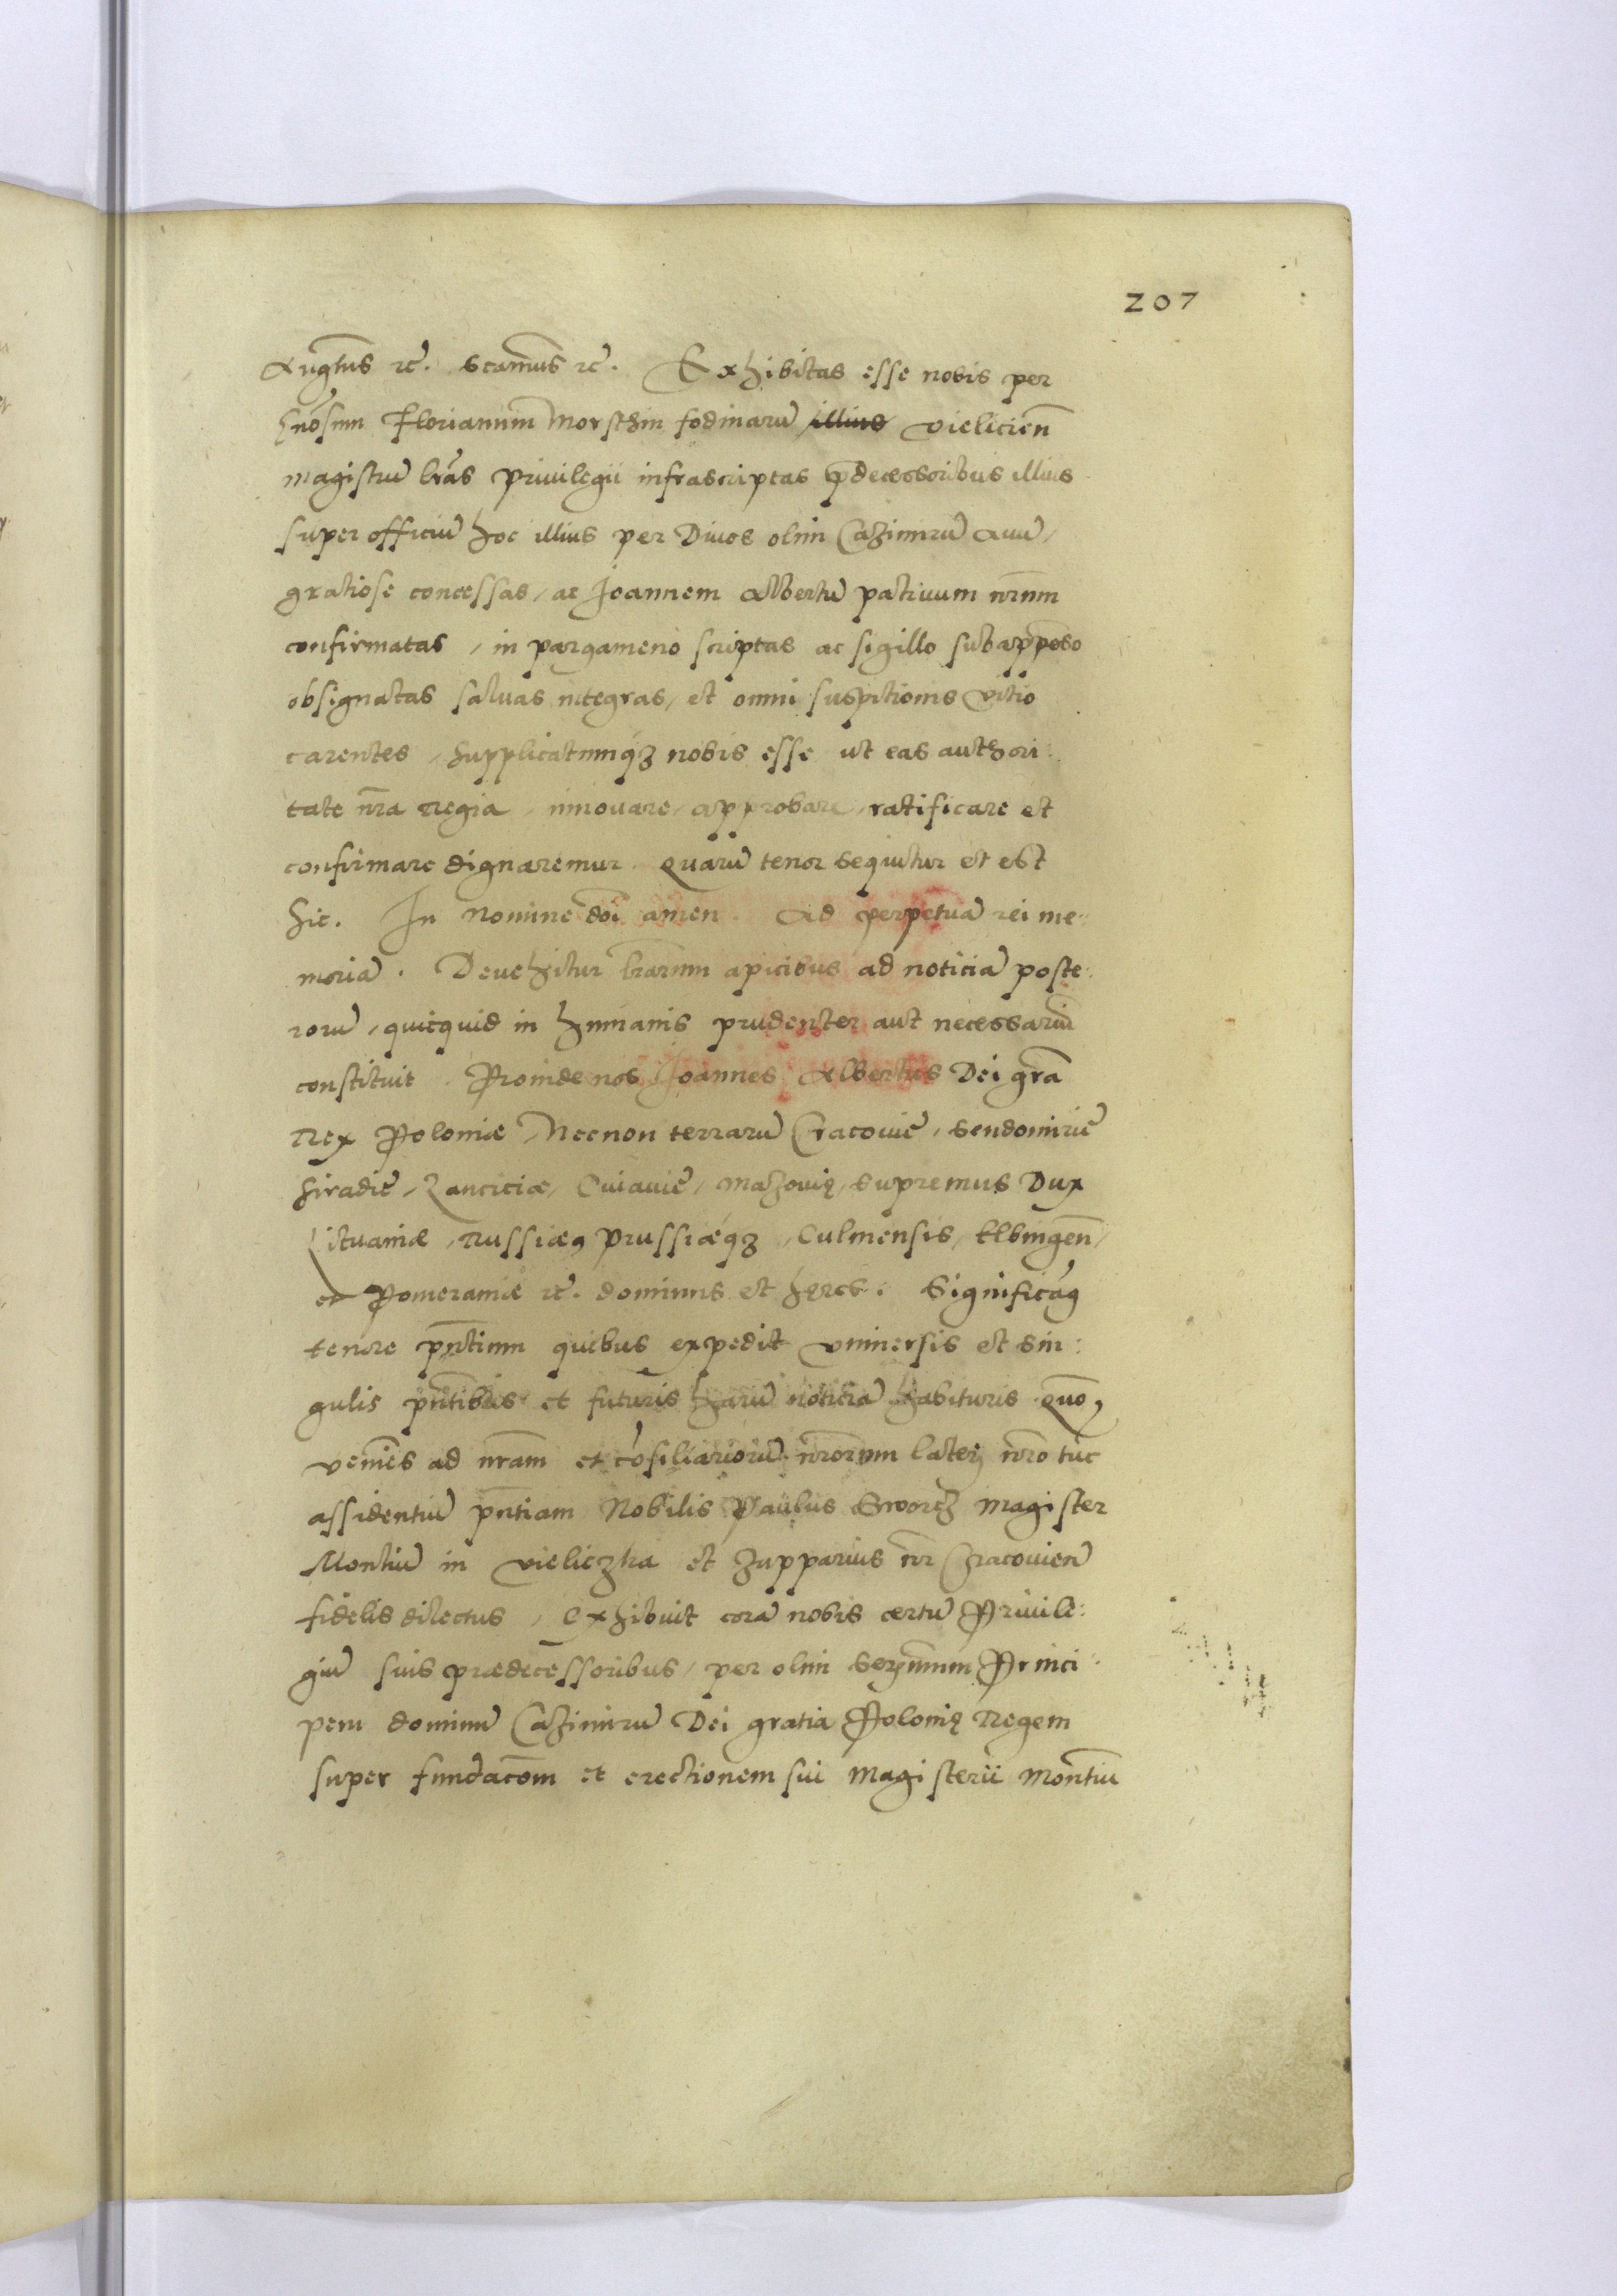 207
Augtus rc̃. Scimus rc̃. Exhibitas esse nobis per
Gñosum Florianum Morsthin fodinarũ illius vielicień
magistrũ lrãs privilegii infrascriptas p̃decessoribus illius
super officiũ hoc illius per Divos olim Cazimirũ avũ,
gratiose concessas, ac Joannem Albertũ patruum nr̃um
confirmatas, in pargameno scriptas ac sigillo subapp̃so
obsignatas salvas integras, et omni suspitionis vitio
carentes, supplicatumq́ꝫ nobis esse ut eas authori:
tate nr̃a Regia, innovare, approbare, ratificare et
confirmare dignaremur. Quarũ tenor sequitur et est
hic. In nomine dñi amen. Ad perpetuã rei me:
moriã. Devehitur lr̃arum apicibus ad noticiã poste:
rorũ, quicquid in humanis prudenter aut necessariũ
constituit. Proinde nos Joannes Albertus Dei gr̃a
Rex Poloniæ, Necnon terrarũ Cracoviẽ, Sendomiriẽ
Siradiẽ, Lanciciæ, Cuiaviẽ, Mazovię, Supremus Dux
Lituaniæ, Russiæq, Prussiæq́ꝫ, Culmensis, Elbingeñ,
et Pomeraniæ rc̃. dominus et heres. Significãꝗ
tenore pñtium quibus expedit universis et sin:
gulis pñtibus et futuris harũ noticiã habituris. Quõ,
veniẽs ad nr̃am et cõsiliariorũ nr̃orum lateri nr̃o tũc
assidentiũ pñtiam Nobilis Paulus Sworcz Magister
Montiũ in vieliczka et zupparius nr̃ Cracovień
fidelis dilectus, Exhibuit corã nobis certũ Privile:
giũ suis prædecessoribus, per olim Serẽnimum Princi:
pem dominũ Cazimirũ Dei gratia Polonię Regem
super fundacõm et erectionem sui Magisterii Montiũ